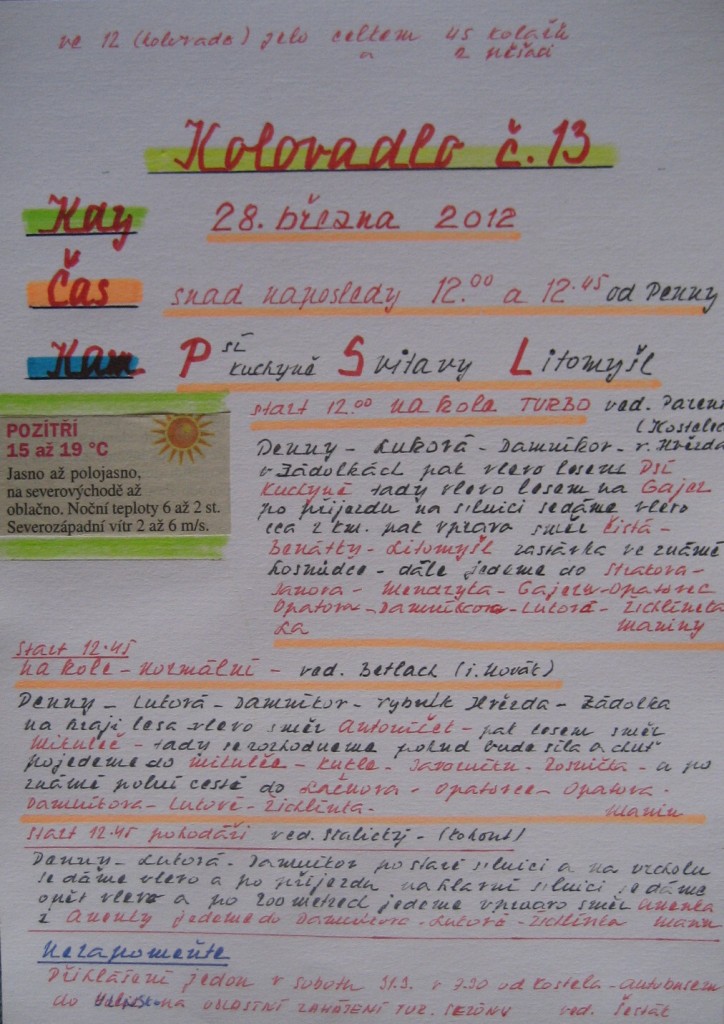 ve 12 (kolovado) jelo celkem 45 kolařů
a 2 pěšáci
Kolovadlo č. 13
Kdy 28. března 2012
Čas snad naposledy 12.00 a 12.45 od Penny
Kam Psí Kuchyně Svitavy Litomyšl
start 12.00 na kola TURBO ved. Pareni
(Kostelec
POZÍTŘÍ
15 až 19 °C
Jasno až polojasno,
na severovýchodě až
oblačno. Noční teploty 6 až 2 st.
Severozápadní vítr 2 až 6 m/s.
Penny - Luková - Damníkov - r. Hvězda
v Zádolkách pak vlevo lesem Psí
Kuchyně tady vlevo lesem na Gajer
po příjezdu na silnici se dáme vlevo
cca 2 km. pak vpravo směr Čistá -
Benátky - Litomyšl zastávka ve známé
hospůdce - dále jedeme do Strakova -
Janova - Mendryka - Gajeru - Opatovec
Opatova - Damníkova - Luková - Žichlínek
Maniny
start 12.45
na kole - normální - ved. Betlach (i. Novák)
Penny - Luková - Damníkov - rybník Hvězda - Zádolka
na kraji lesa vlevo směr Antoníček - pak lesem směr
Mikuleč - tady se rozhodneme pokud bude síla a chuť
pojedeme do Mikulče - Kukle - Javorníku - Sosnička - a po
známé polní cestě do Lačnova - Opatovce - Opatova -
Damníkova - Lukové - Žichlínka - Manin
start 12.45 pohodáři ved. Skalický - (Kohout)
Penny - Luková - Damníkov po staré silnici a na vrcholu
se dáme vlevo a po příjezdu na hlavní silnici se dáme
opět vlevo a po 200 metrech jedeme vpravo směr Anenka
z Anenky jedeme do Damníkova - Luková - Žichlínka Manin
Nezapomeňte
Přihlášení jedou v sobotu 31.3. v 7.30 od Kostela - autobusem
do na OBLASTNÍ ZAHÁJENÍ TUR. SEZÓNY ved. Šesták